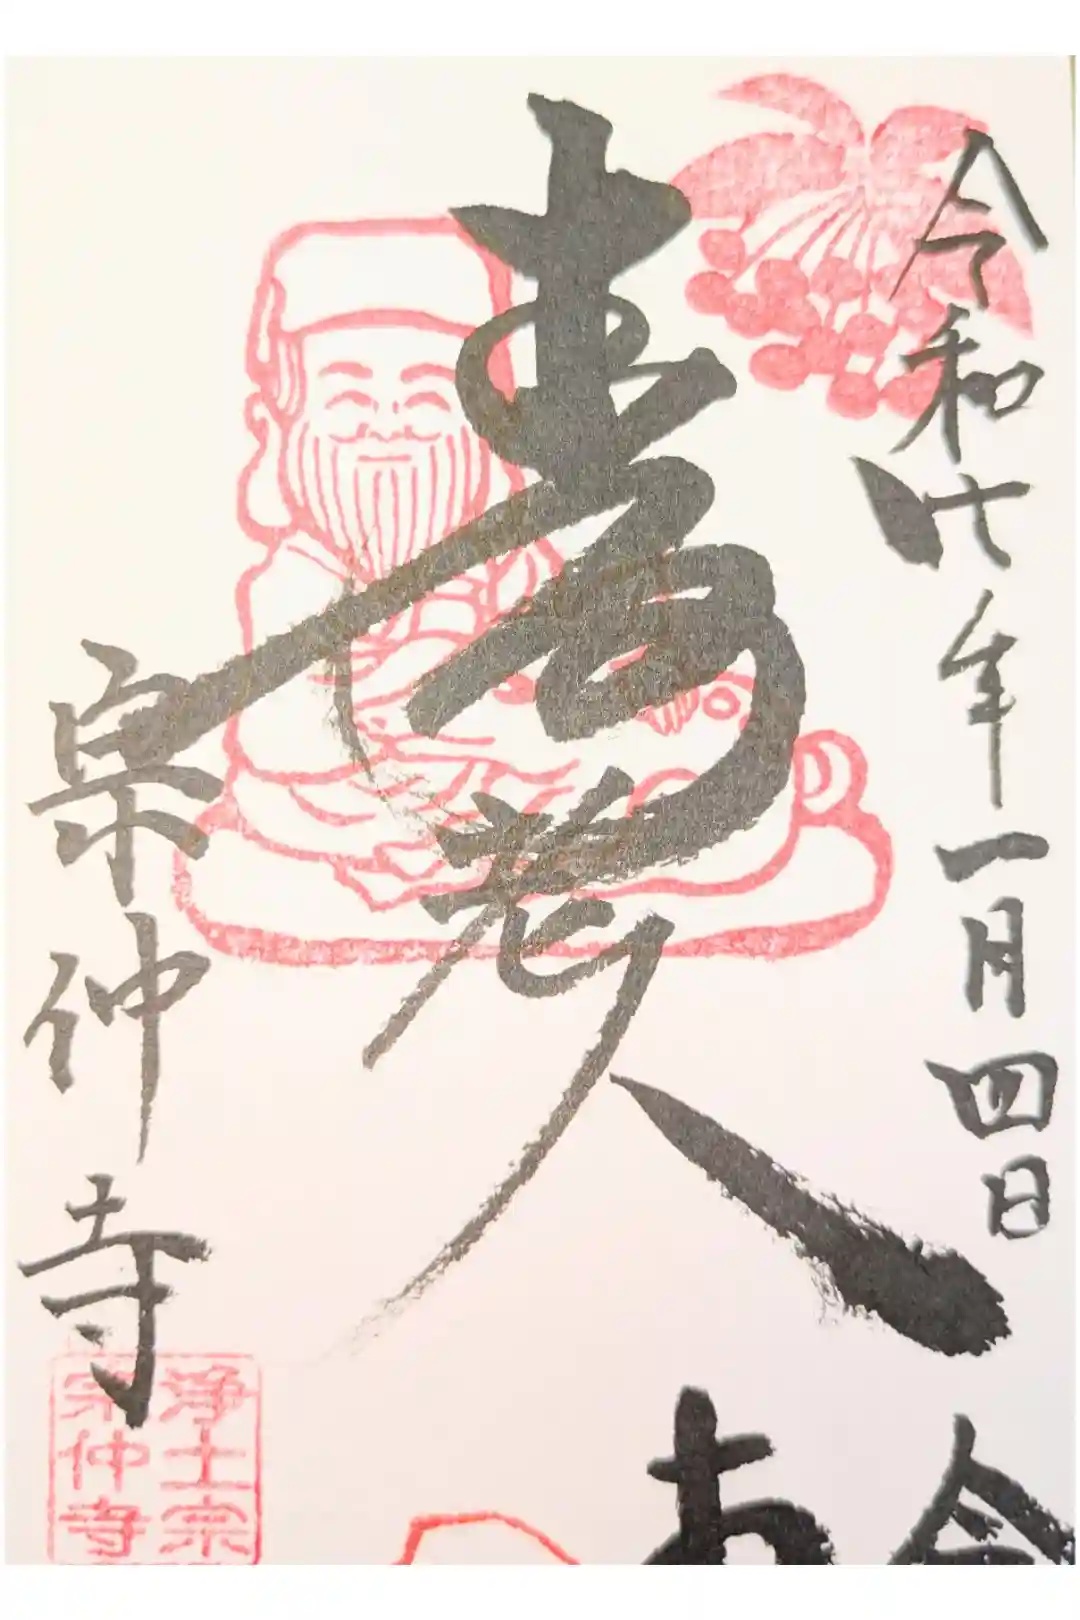 令和七年一月四日
壽老人
宗仲寺
浄土宗
宗仲寺